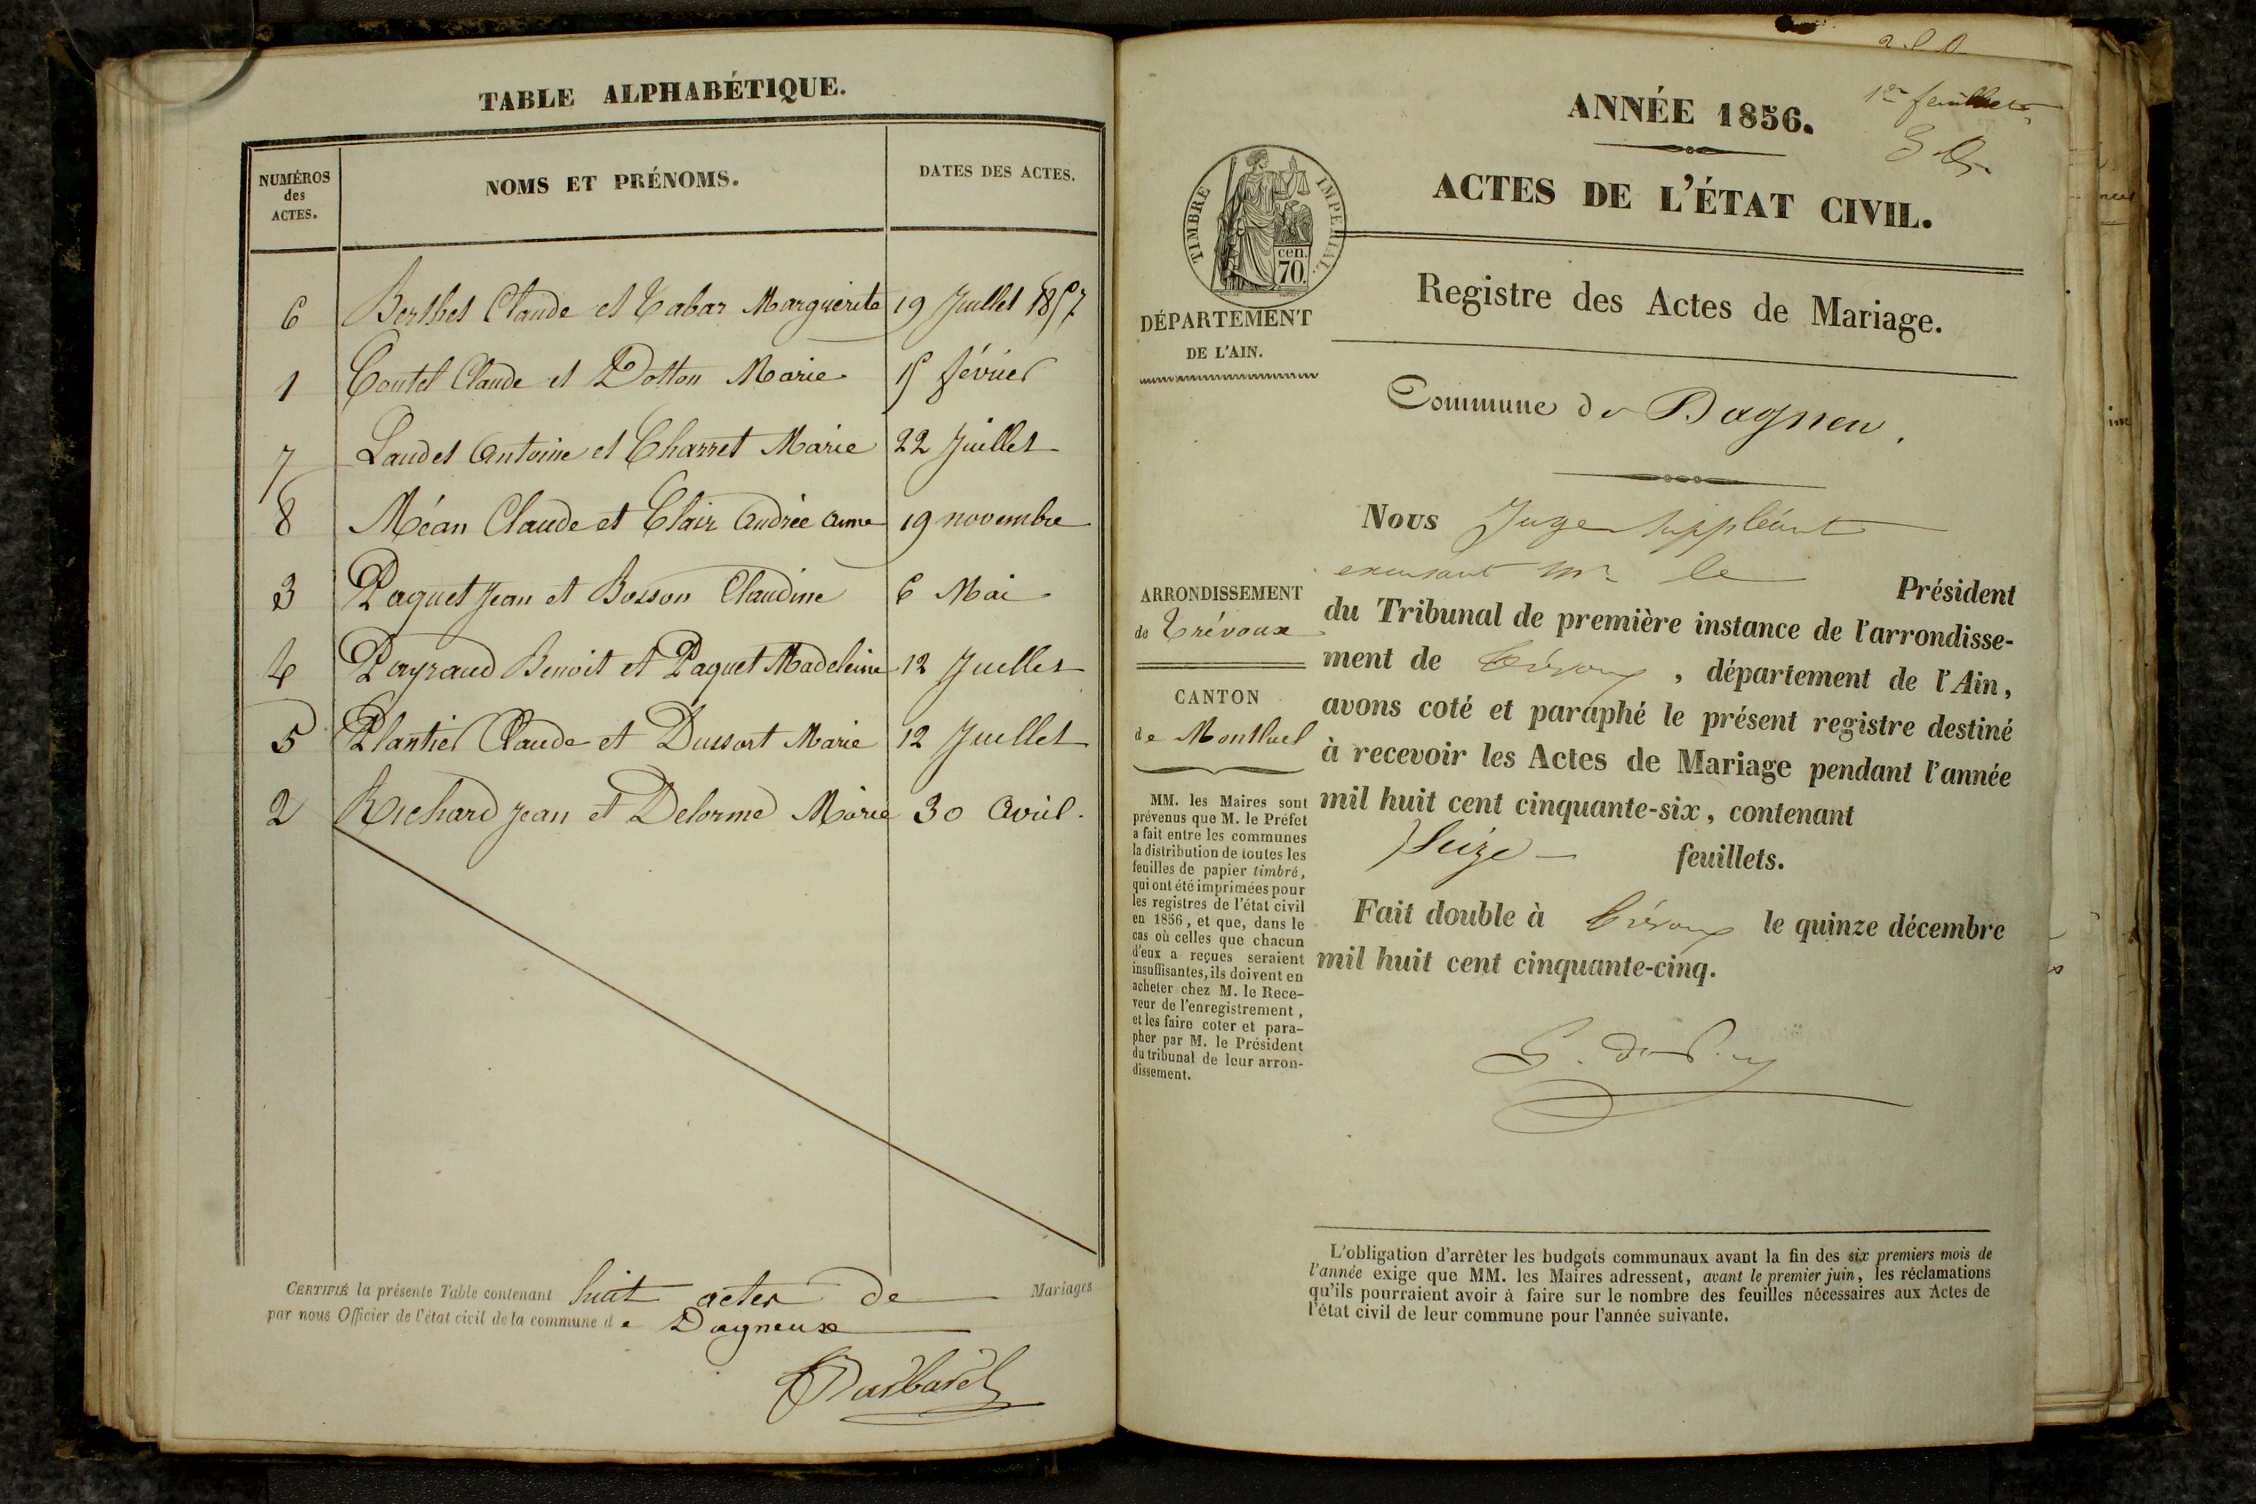 TABLE ALPHABÉTIQUE.
NUMÉROS des ACTES. NOMS ET PRÉNOMS. DATES DES ACTES.
6 Berthet Claude et Tabar Marguerite 19 Juillet 1857
1 Coutel Claude et Dotton Marie 15 février
7 Laudet Antoine et Charret Marie 22 Juillet
8 Méan Claude et Clair Andrée aimé 19 novembre
3 Paquet Jean et Bosson Claudine 6 Mai
4 Payraud Benoit et Paquet Madeleine 12 Juillet
5 Plantier Claude et Dussort Marie 12 Juillet
2 Richard Jean et Delorme Marie 30 Avril.
CERTIFIÉ la présente Table contenant huit actes de Mariages
par nous Officier de l'état civil de la commune de Dagneux
1er feuillet
ANNÉE 1856.
ACTES DE L'ÉTAT CIVIL.
TIMBRE IMPERIAL.
cen.
70.
DÉPARTEMENT
DE L'AIN.
Registre des Actes de Mariage.
Commune de Dagneu.
ARRONDISSEMENT
de Trévoux
CANTON
de Montluel
MM. les Maires sont
prévenus que M. le Préfet
a fait entre les communes
la distribution de toutes les
feuilles de papier timbré,
qui ont été imprimées pour
les registres de l'état civil
en 1856, et que, dans le
cas où celles que chacun
d'eux a reçues seraient
insuffisantes, ils doivent en
acheter chez M. le Rece-
veur de l'enregistrement,
et les faire coter et para-
pher par M. le Président
du tribunal de leur arron-
dissement.
Nous Juge suppléant
Mr le Président
du Tribunal de première instance de l'arrondisse-
ment de Trévoux, département de l'Ain,
avons coté et paraphé le présent registre destiné
à recevoir les Actes de Mariage pendant l'année
mil huit cent cinquante-six, contenant
Seize feuillets.
Fait double à Trévoux le quinze décembre
mil huit cent cinquante-cinq.
L'obligation d'arrêter les budgets communaux avant la fin des six premiers mois de
l'année exige que MM. les Maires adressent, avant le premier juin, les réclamations
qu'ils pourraient avoir à faire sur le nombre des feuilles nécessaires aux Actes de
l'état civil de leur commune pour l'année suivante.